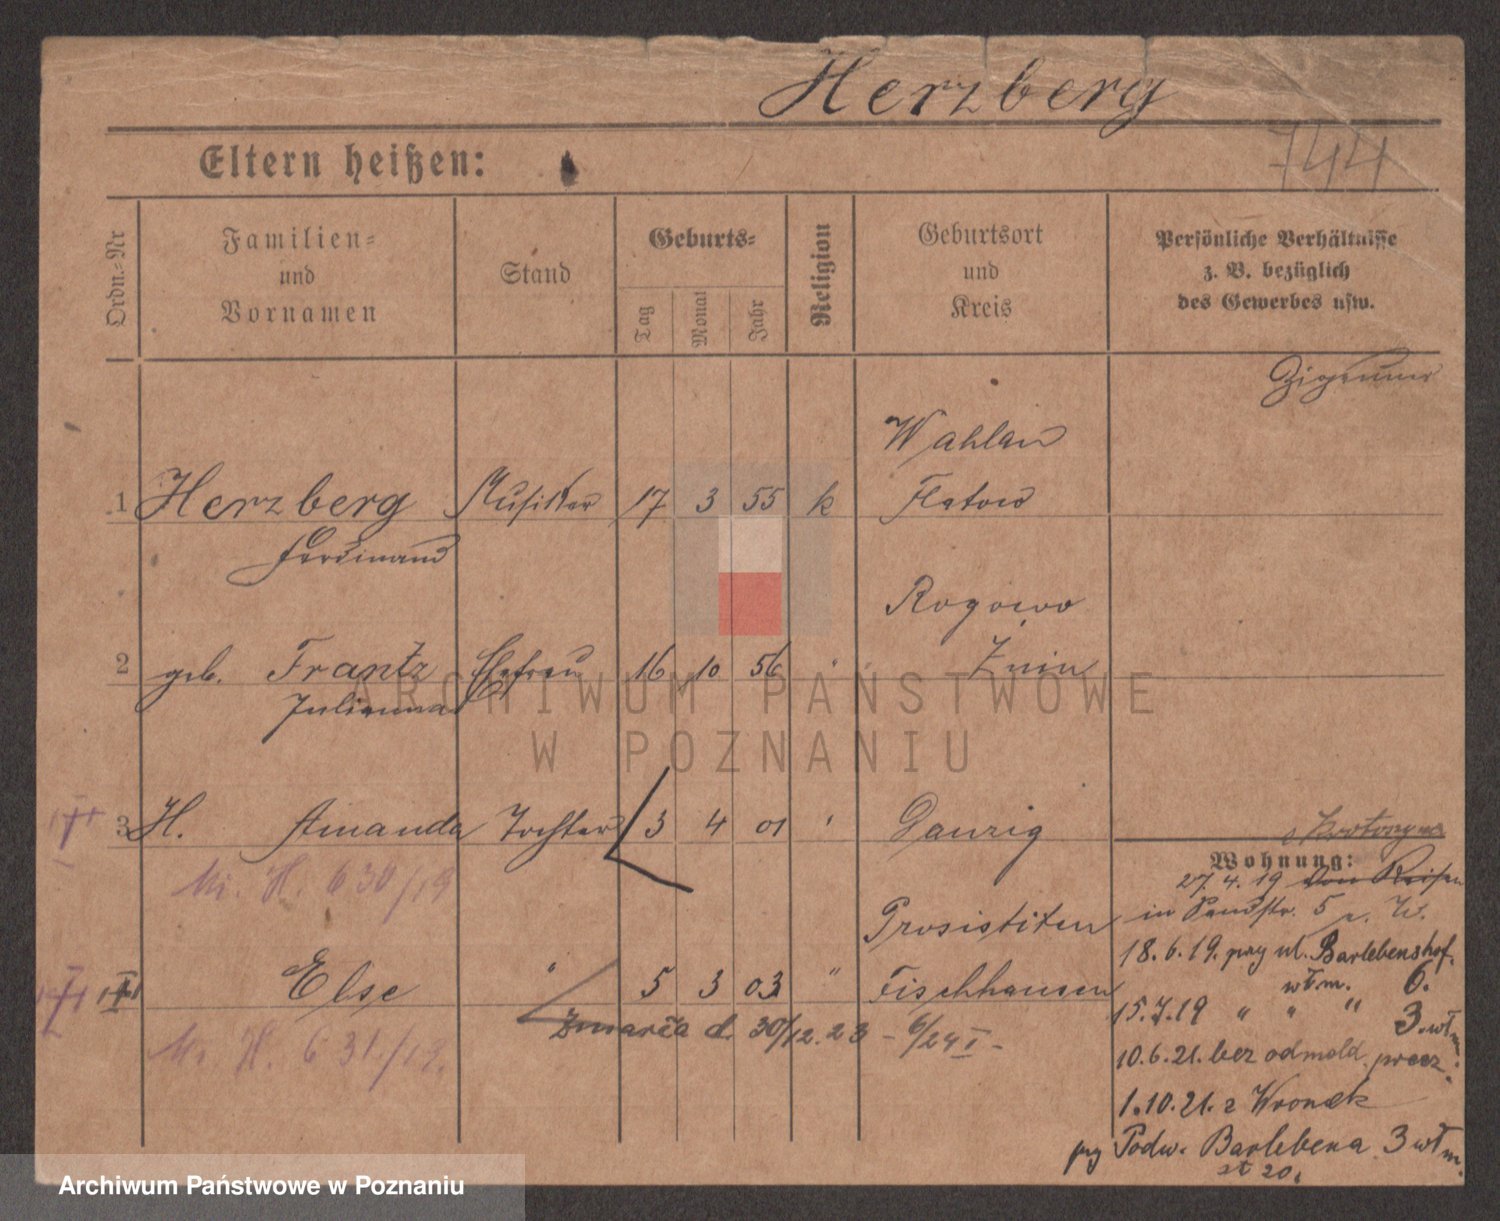 Herzberg
744
Eltern heißen:
Ordn.-Nr
Familien-
und
Vornamen
Stand
Geburts-
Tag
Monat
Jahr
Religion
Geburtsort
und
Kreis
Persönliche Verhältnisse
z. B. bezüglich
des Gewerbes usw.
Zigeuner
Wahlau
1 Herzberg Musiker 17 3 55 k Flatow
Ferdinand
Rogowo
2 geb. Frantz Ehefrau 16 10 56 " Znin
Julianna
3 H. Amanda Tochter 3 4 01 " Danzig
Mi. H. 630/19
Wohnung:
27.4.19 von Reisen
in Sandstr. 5
Prosistiten
18.6.19. przy ul. Barlebenshof.
Else " 5 3 03 " Fischhausen
wtm. 6.
15.7.19 " " " 3. wtm.
Zmarła d. 30/12.23 - 6/24 I -
M. H. 631/19.
10.6.21. bez odmeld.
1.10.21. z Wronek
przy Podw. Barlebena 3 wtm.
st 20.
ARCHIWUM PAŃSTWOWE
W POZNANIU
Archiwum Państwowe w Poznaniu